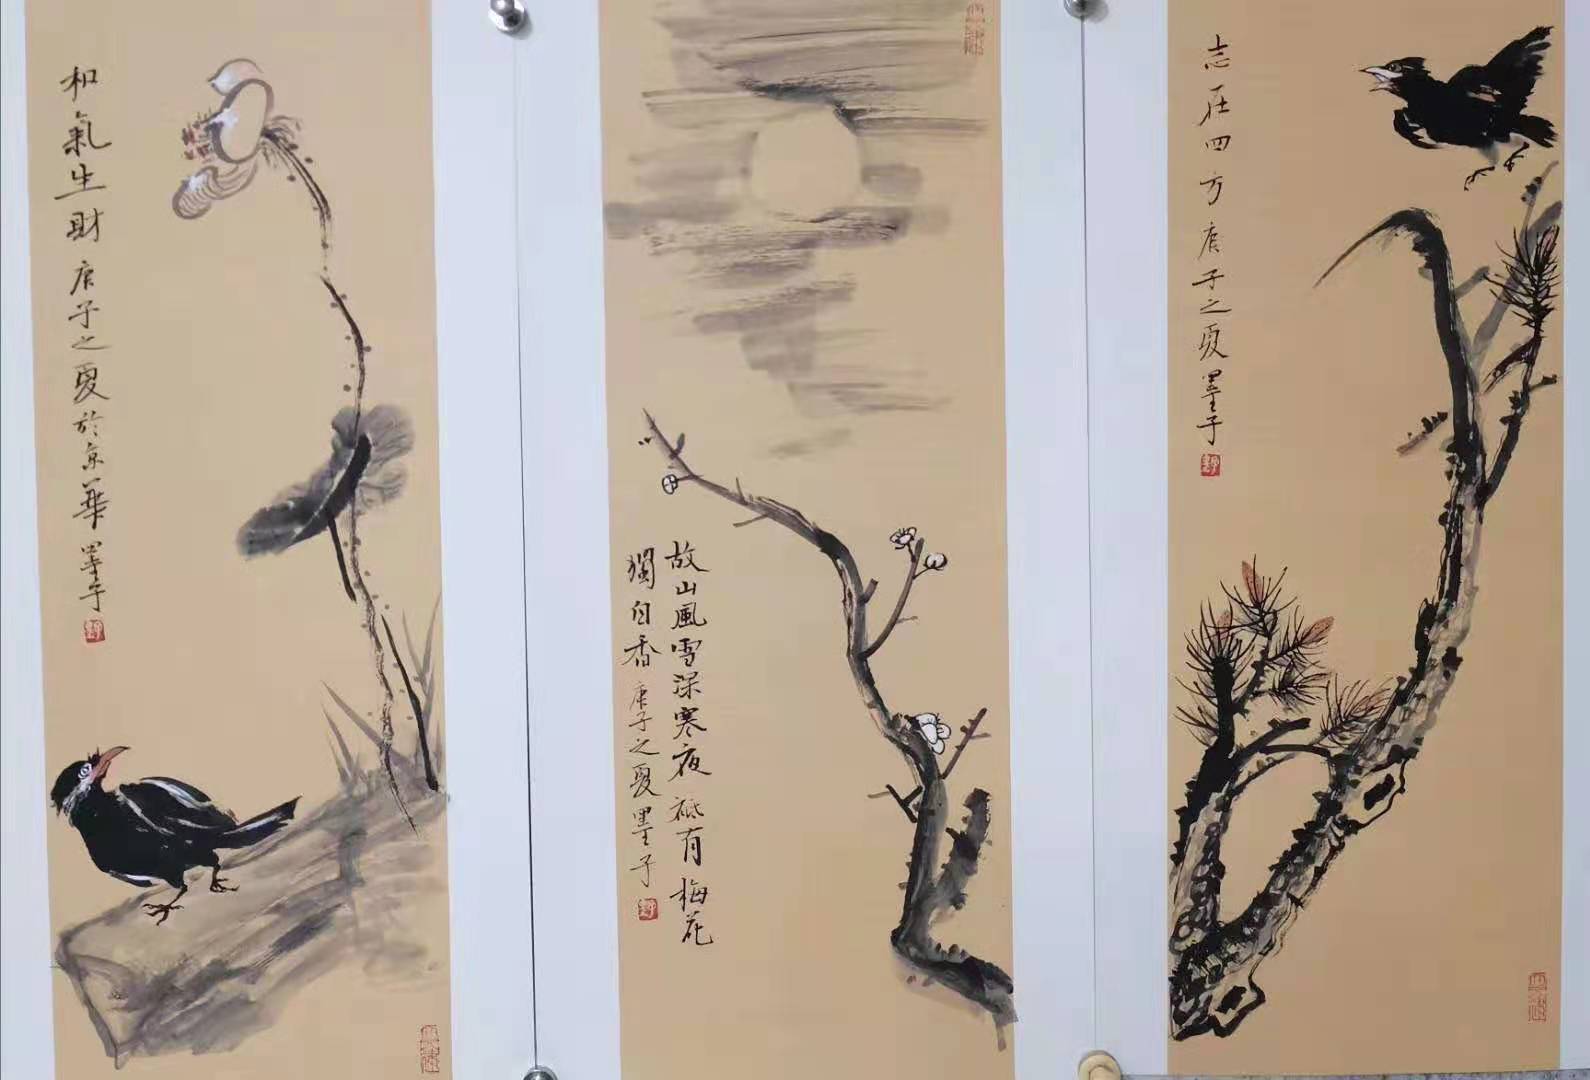 和氣生財 庚子之夏於京華 墨子
故山風雪深寒夜 祗有梅花
獨自香 庚子之夏 墨子
志在四方 庚子之夏 墨子